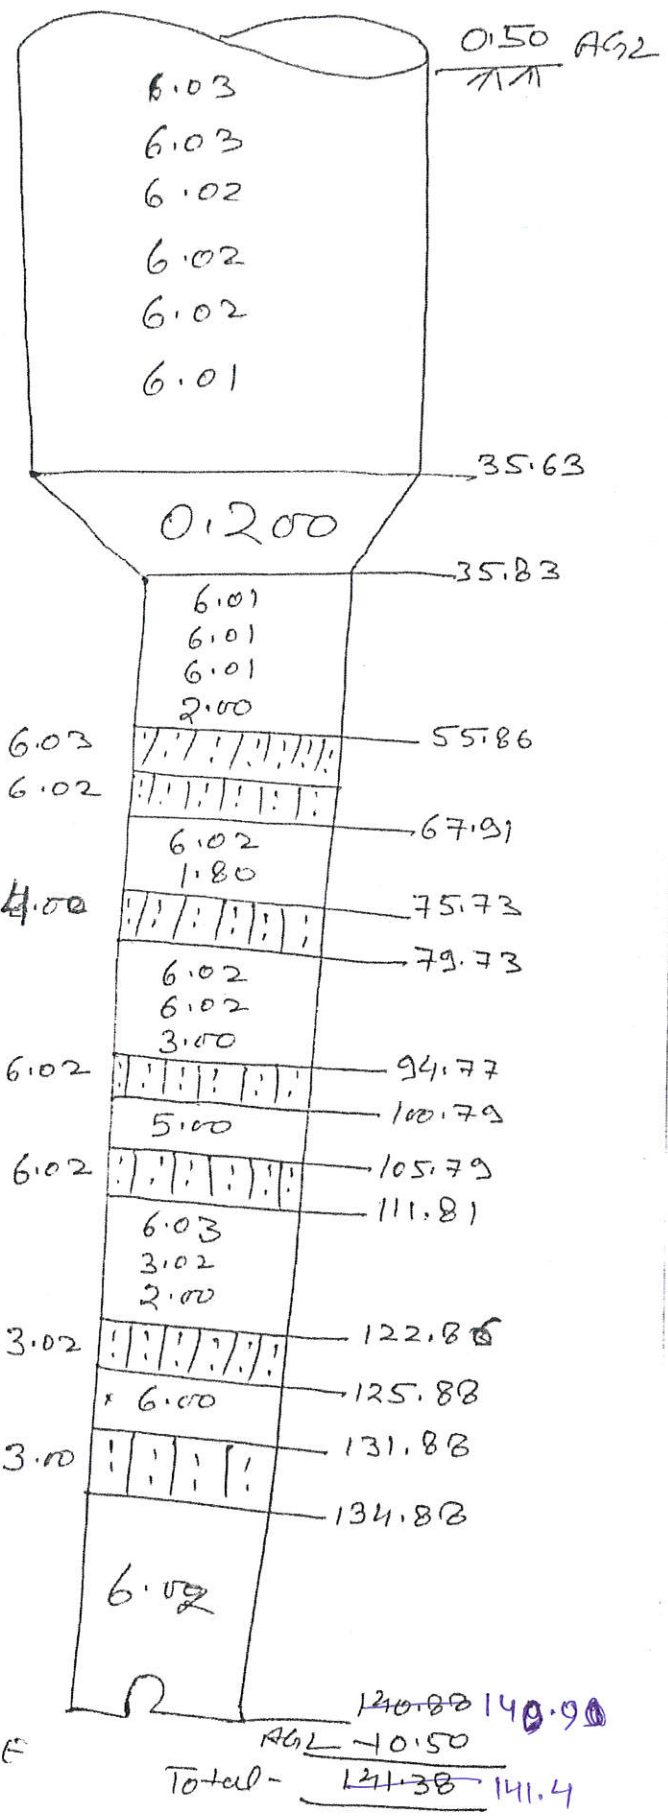 0.50 AGL
6.03
6.03
6.02
6.02
6.02
6.01
35.63
0.200
35.83
6.01
6.01
6.01
2.00
6.03 55.86
6.02
67.91
6.02
1.80
4.00 75.73
79.73
6.02
6.02
3.00
6.02 94.77
100.79
5.00
6.02 105.79
111.81
6.03
3.02
2.00
3.02 122.86
125.88
6.00
3.00 131.88
134.88
140.88 140.90
AGL +0.50
Total - 141.38 141.4